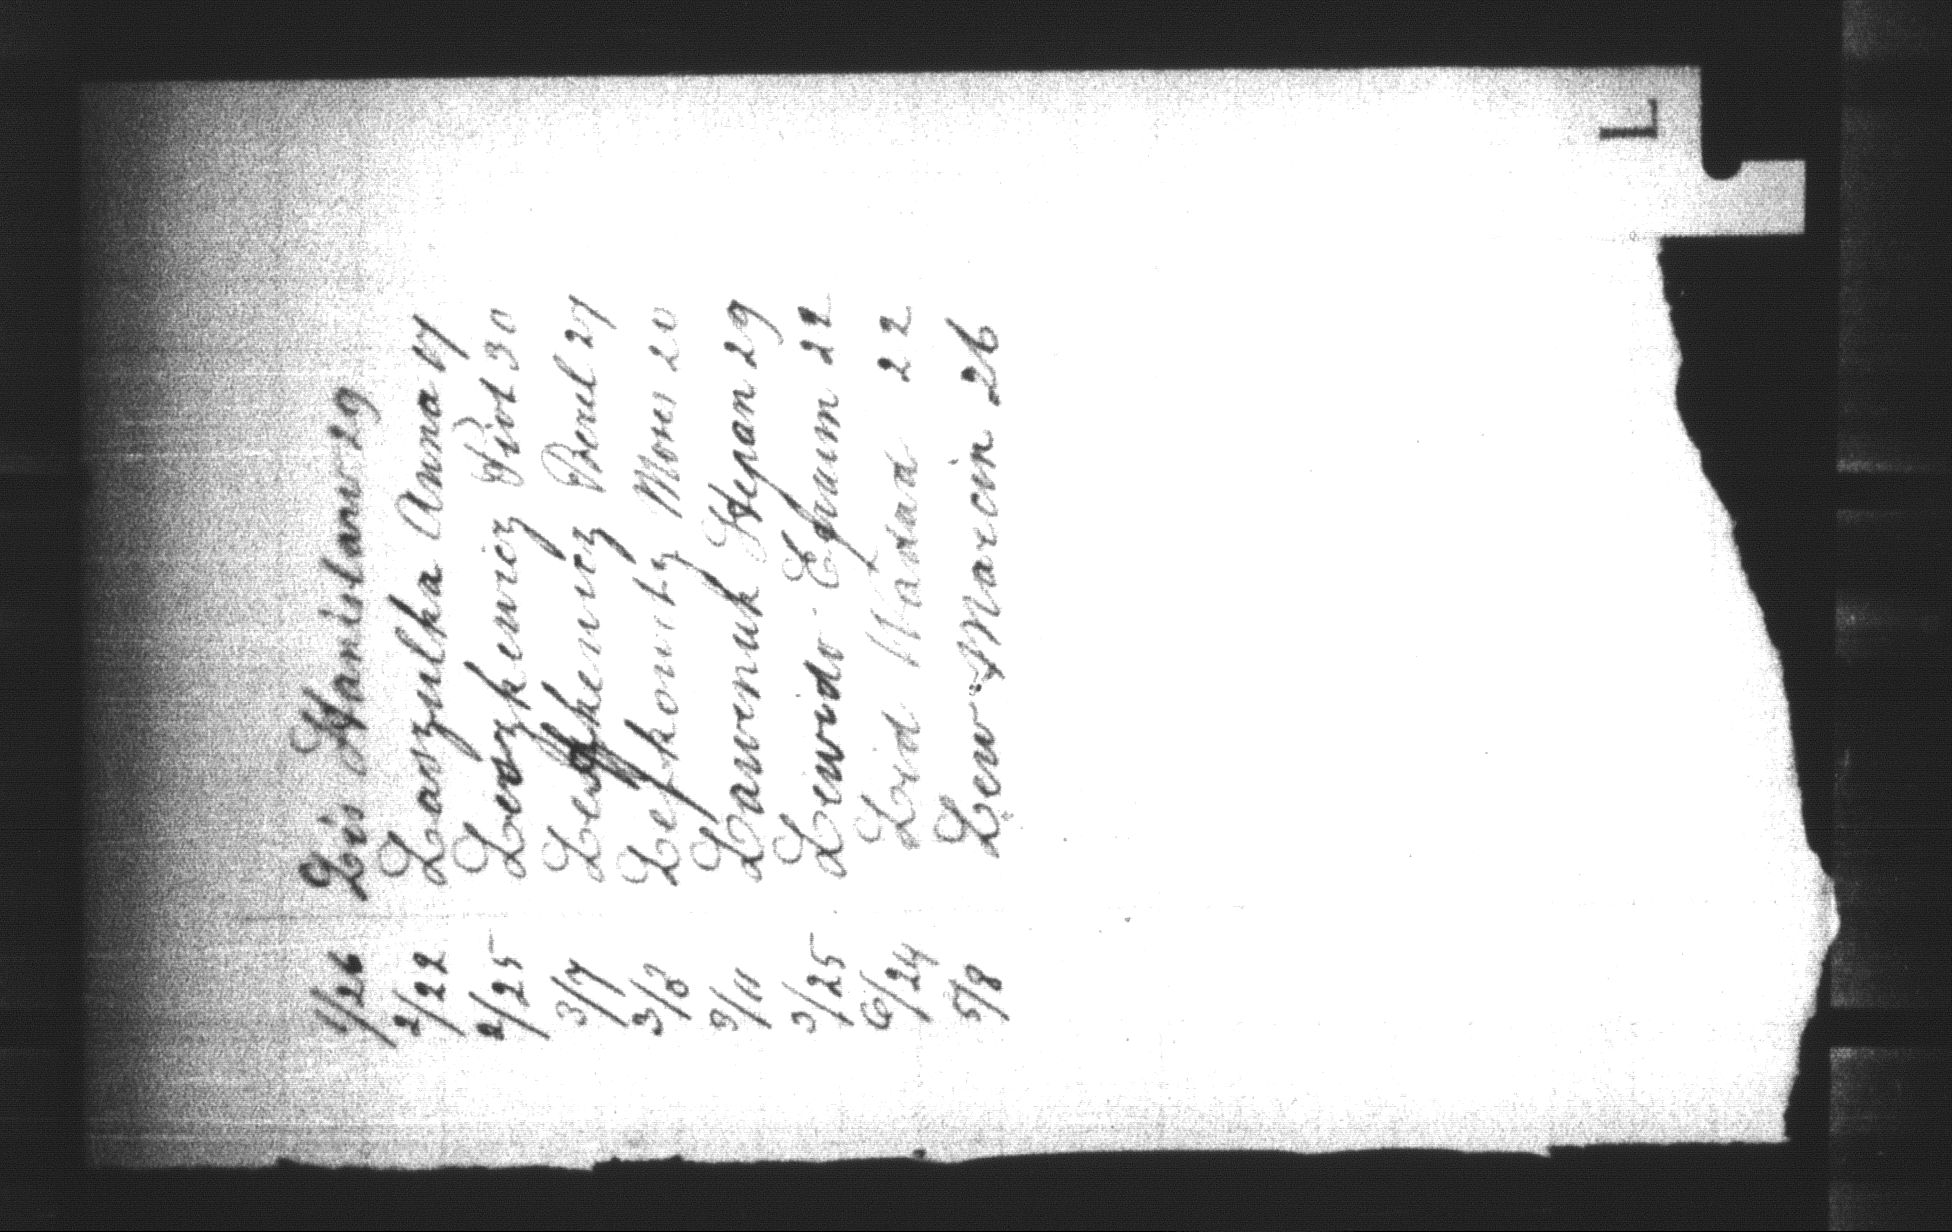 L
1/26 Lis Stanislaw 29
2/22 Laszulka Anna 17
2/25 Leszkewicz Piot 30
3/7 Berel 27
3/8 Lefkowitz Moses 20
3/11 Lawenuk Stepan 29
3/25 Lewido Efraim 22
6/24 Lid 22
5/8 Lew Marcin 26